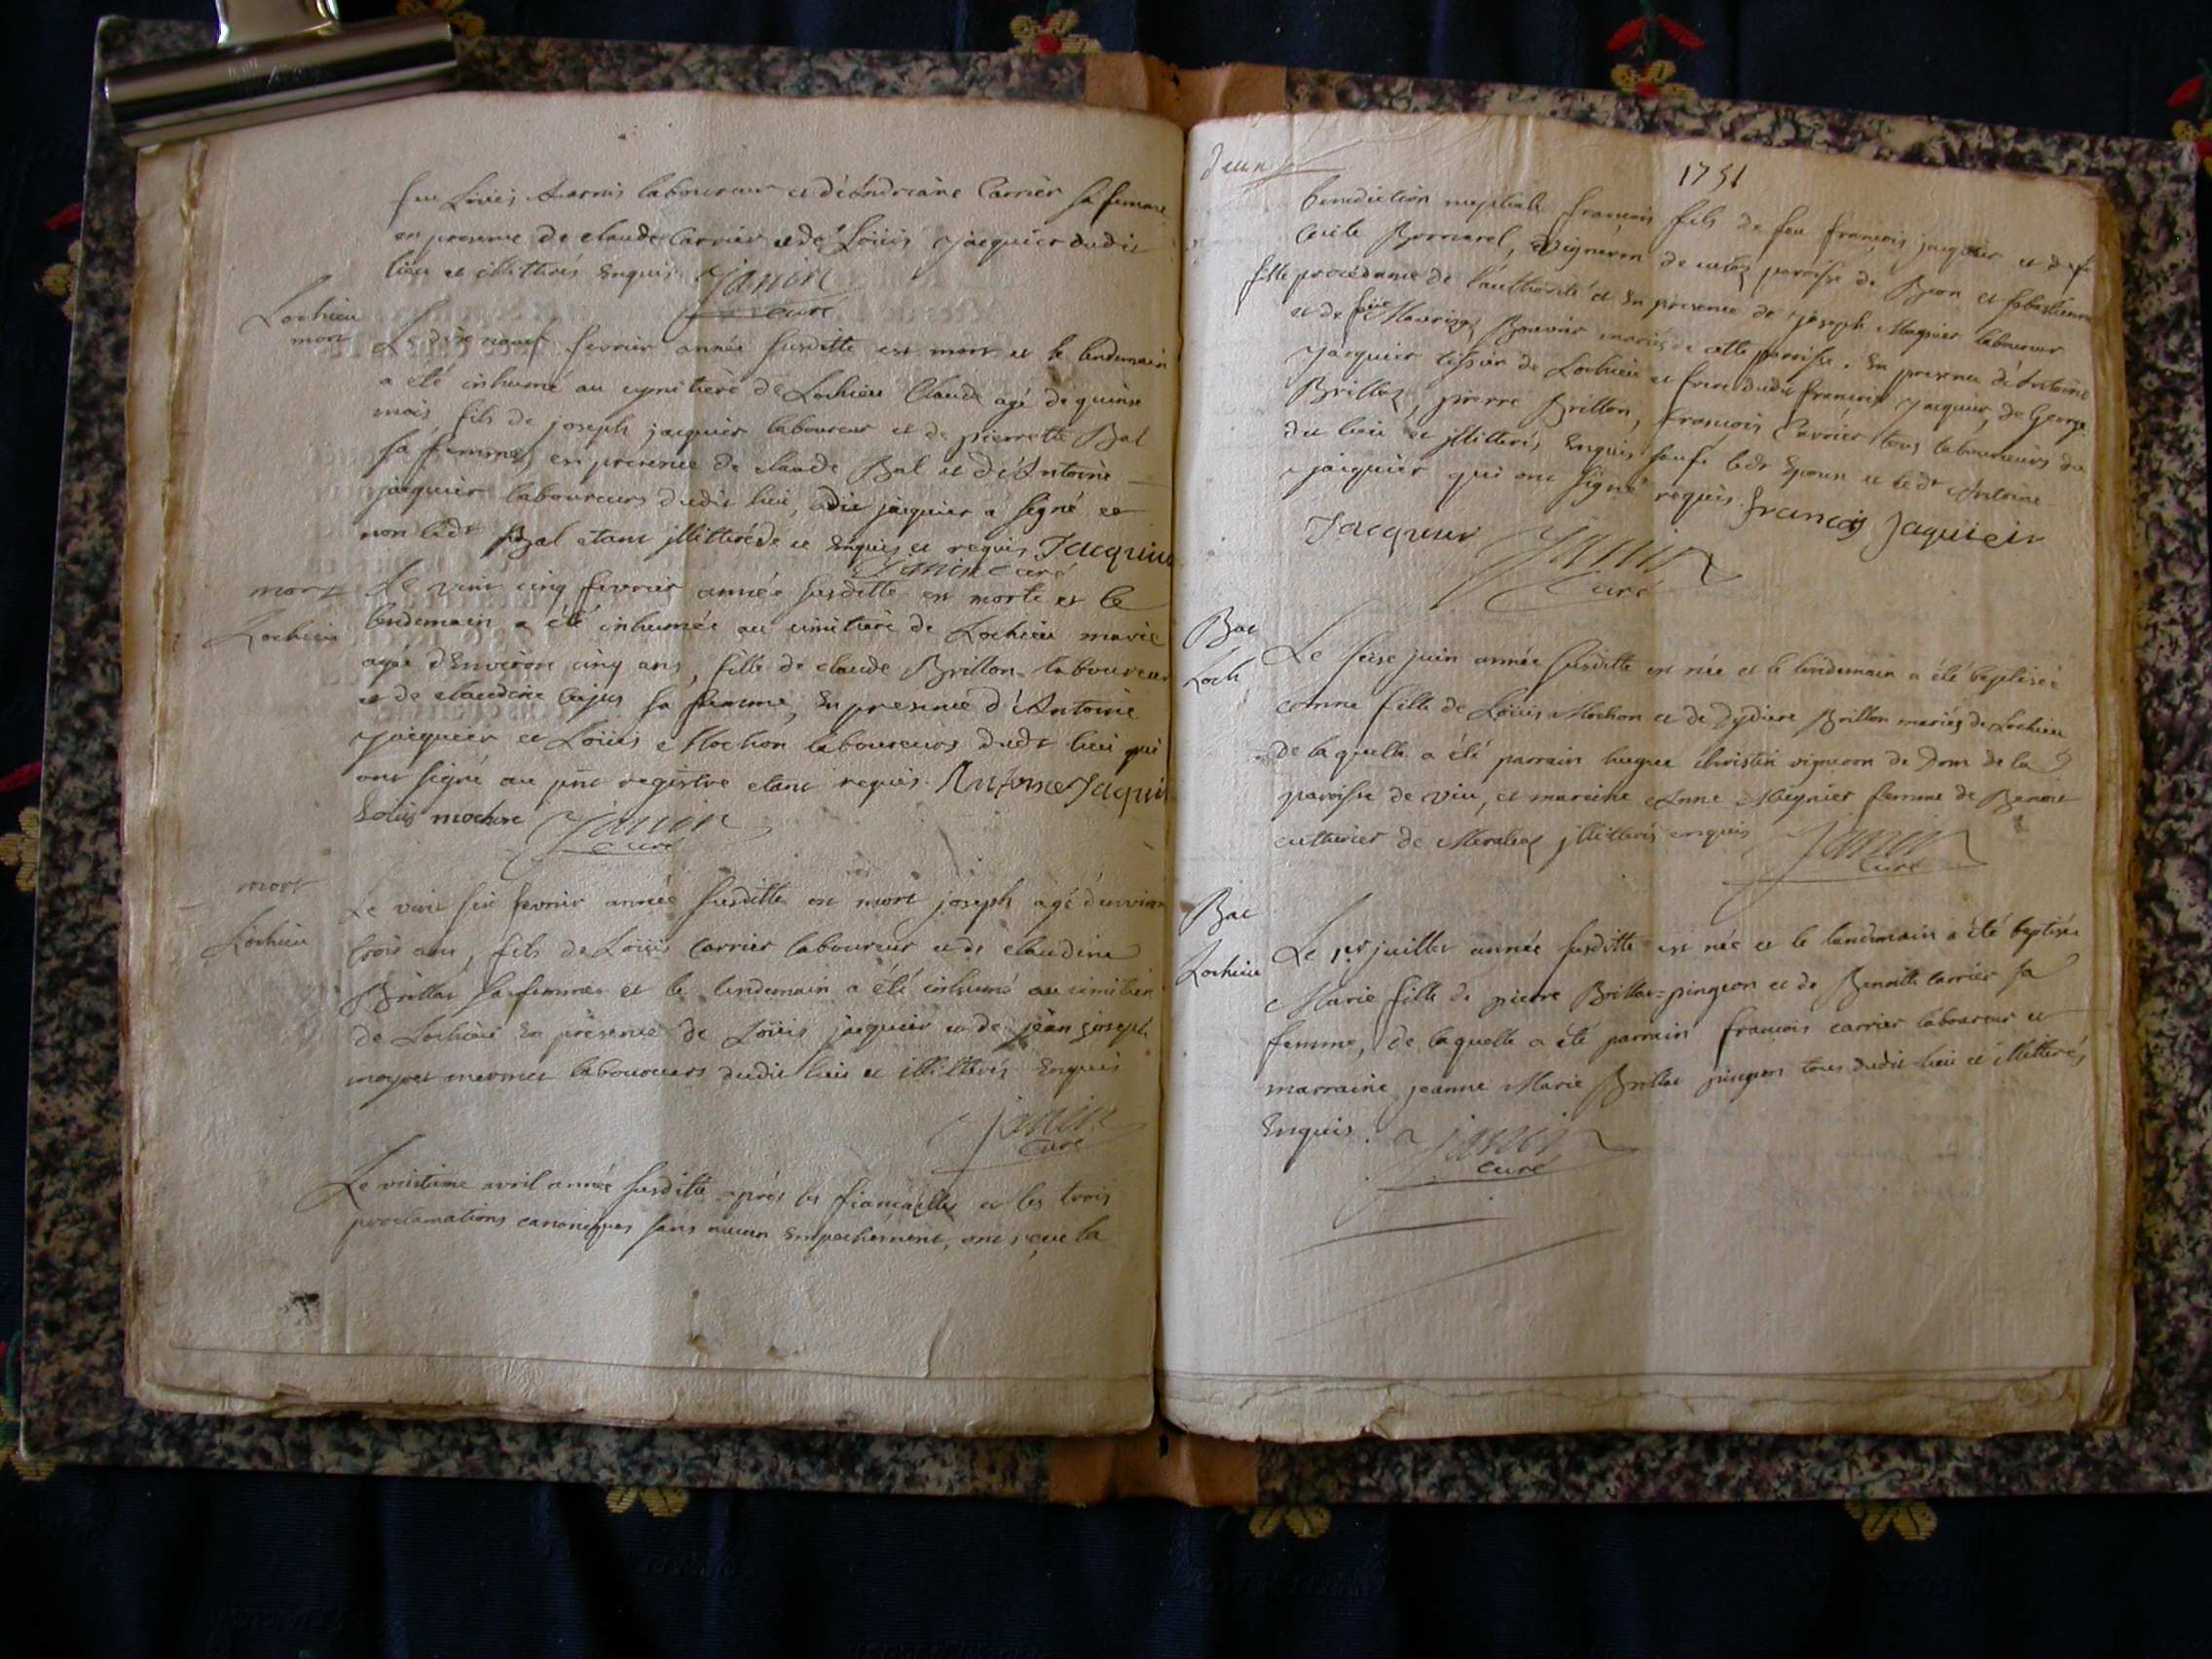 feu Loüis laboureur et d'éAndreane Carrier sa femme
en presence de claude Carrier et de Loüis jacquier dudit
lieu et illitterés Enquis. Janin
curé
Lochieu
mort
Le dixe neuf fevrier année susditte est mort et le lendemain
a été inhumé au cymitiere de Lochieu Claude agé de quinse
mois fils de joseph jacquier laboureur et de pierrette Bal
sa femme, en presence de claude Bal et d'éAntoine
jacquier laboureurs dudit lieu, jacquier a signé et
non ledt Bal etant jllitteré de ce Enquis et requis Jacquier
Janin curé
mort
Lochieu
Le vint cinq fevrier année susditte est morte et le
lendemain a été inhumée au cimitiere de Lochieu marie
agée d'Environ cinq ans, fille de claude Brillon laboureur
et de claudine Cujus sa femme, En presence d'éAntoine
jacquier et Loüis Mochon laboureurs dudt lieu qui
ont signé au pnt registre etant requis. Antoine Jaquier
Louis mochon Janin
curé
mort
Lochieu
Le vint six fevrier année susditte est mort joseph agé d'environ
trois ans, fils de Loüis Carrier laboureur et de claudine
Brillat sa femme et le lendemain a été inhumé au cimitiere
de Lochieu En presence de Loüis jacquier et de jean joseph
mermet laboureurs dudit lieu et illitterés Enquis
janin
curé
Le vintieme avril année susditte aprés les fiançailles et les trois
proclamations canoniques sans aucun Empechement, ont reçue la
1751
benediction nuptiale françois fils de feu françois jacquier et de
vigneron de paroisse de Beon et sebastienne
fille procedante de l'authorité et En presence de joseph Mugnier laboureur
et de Bouvier mariés de cette paroisse. En presence d'éAntoine
jacquier tissier de Lochieu et frere dudit françois jacquier, de George
Brillat, pierre Brillon, françois Carrier tous laboureurs du
dit lieu et jllitterés Enquis sauf ledt Epoux et ledt Antoine
jacquier qui ont signé requis. françois Jaquieir
Jacquier Janin
curé
Bat
Loch
Le seise juin année susditte est née et le lendemain a été baptisée
fille de Loüis Mochon et de Dydiere Brillon mariés de Lochieu
de laquelle a été parrain hugue christin vigneron de Dom de la
paroisse de viu, et mareine Anne Mugnier femme de Benoit
cutturier de jllitterés enquis Janin
curé
Bat
Lochieu
Le 1er juillet année susditte est née et le lendemain a été baptisée
Marie fille de pierre Brillat=pingeon et de Benoite carrier sa
femme, de laquelle a été parrain françois carrier laboureur et
marraine jeanne Marie Brillat pingeon tous dudit lieu et illitterés
Enquis. Janin
curé